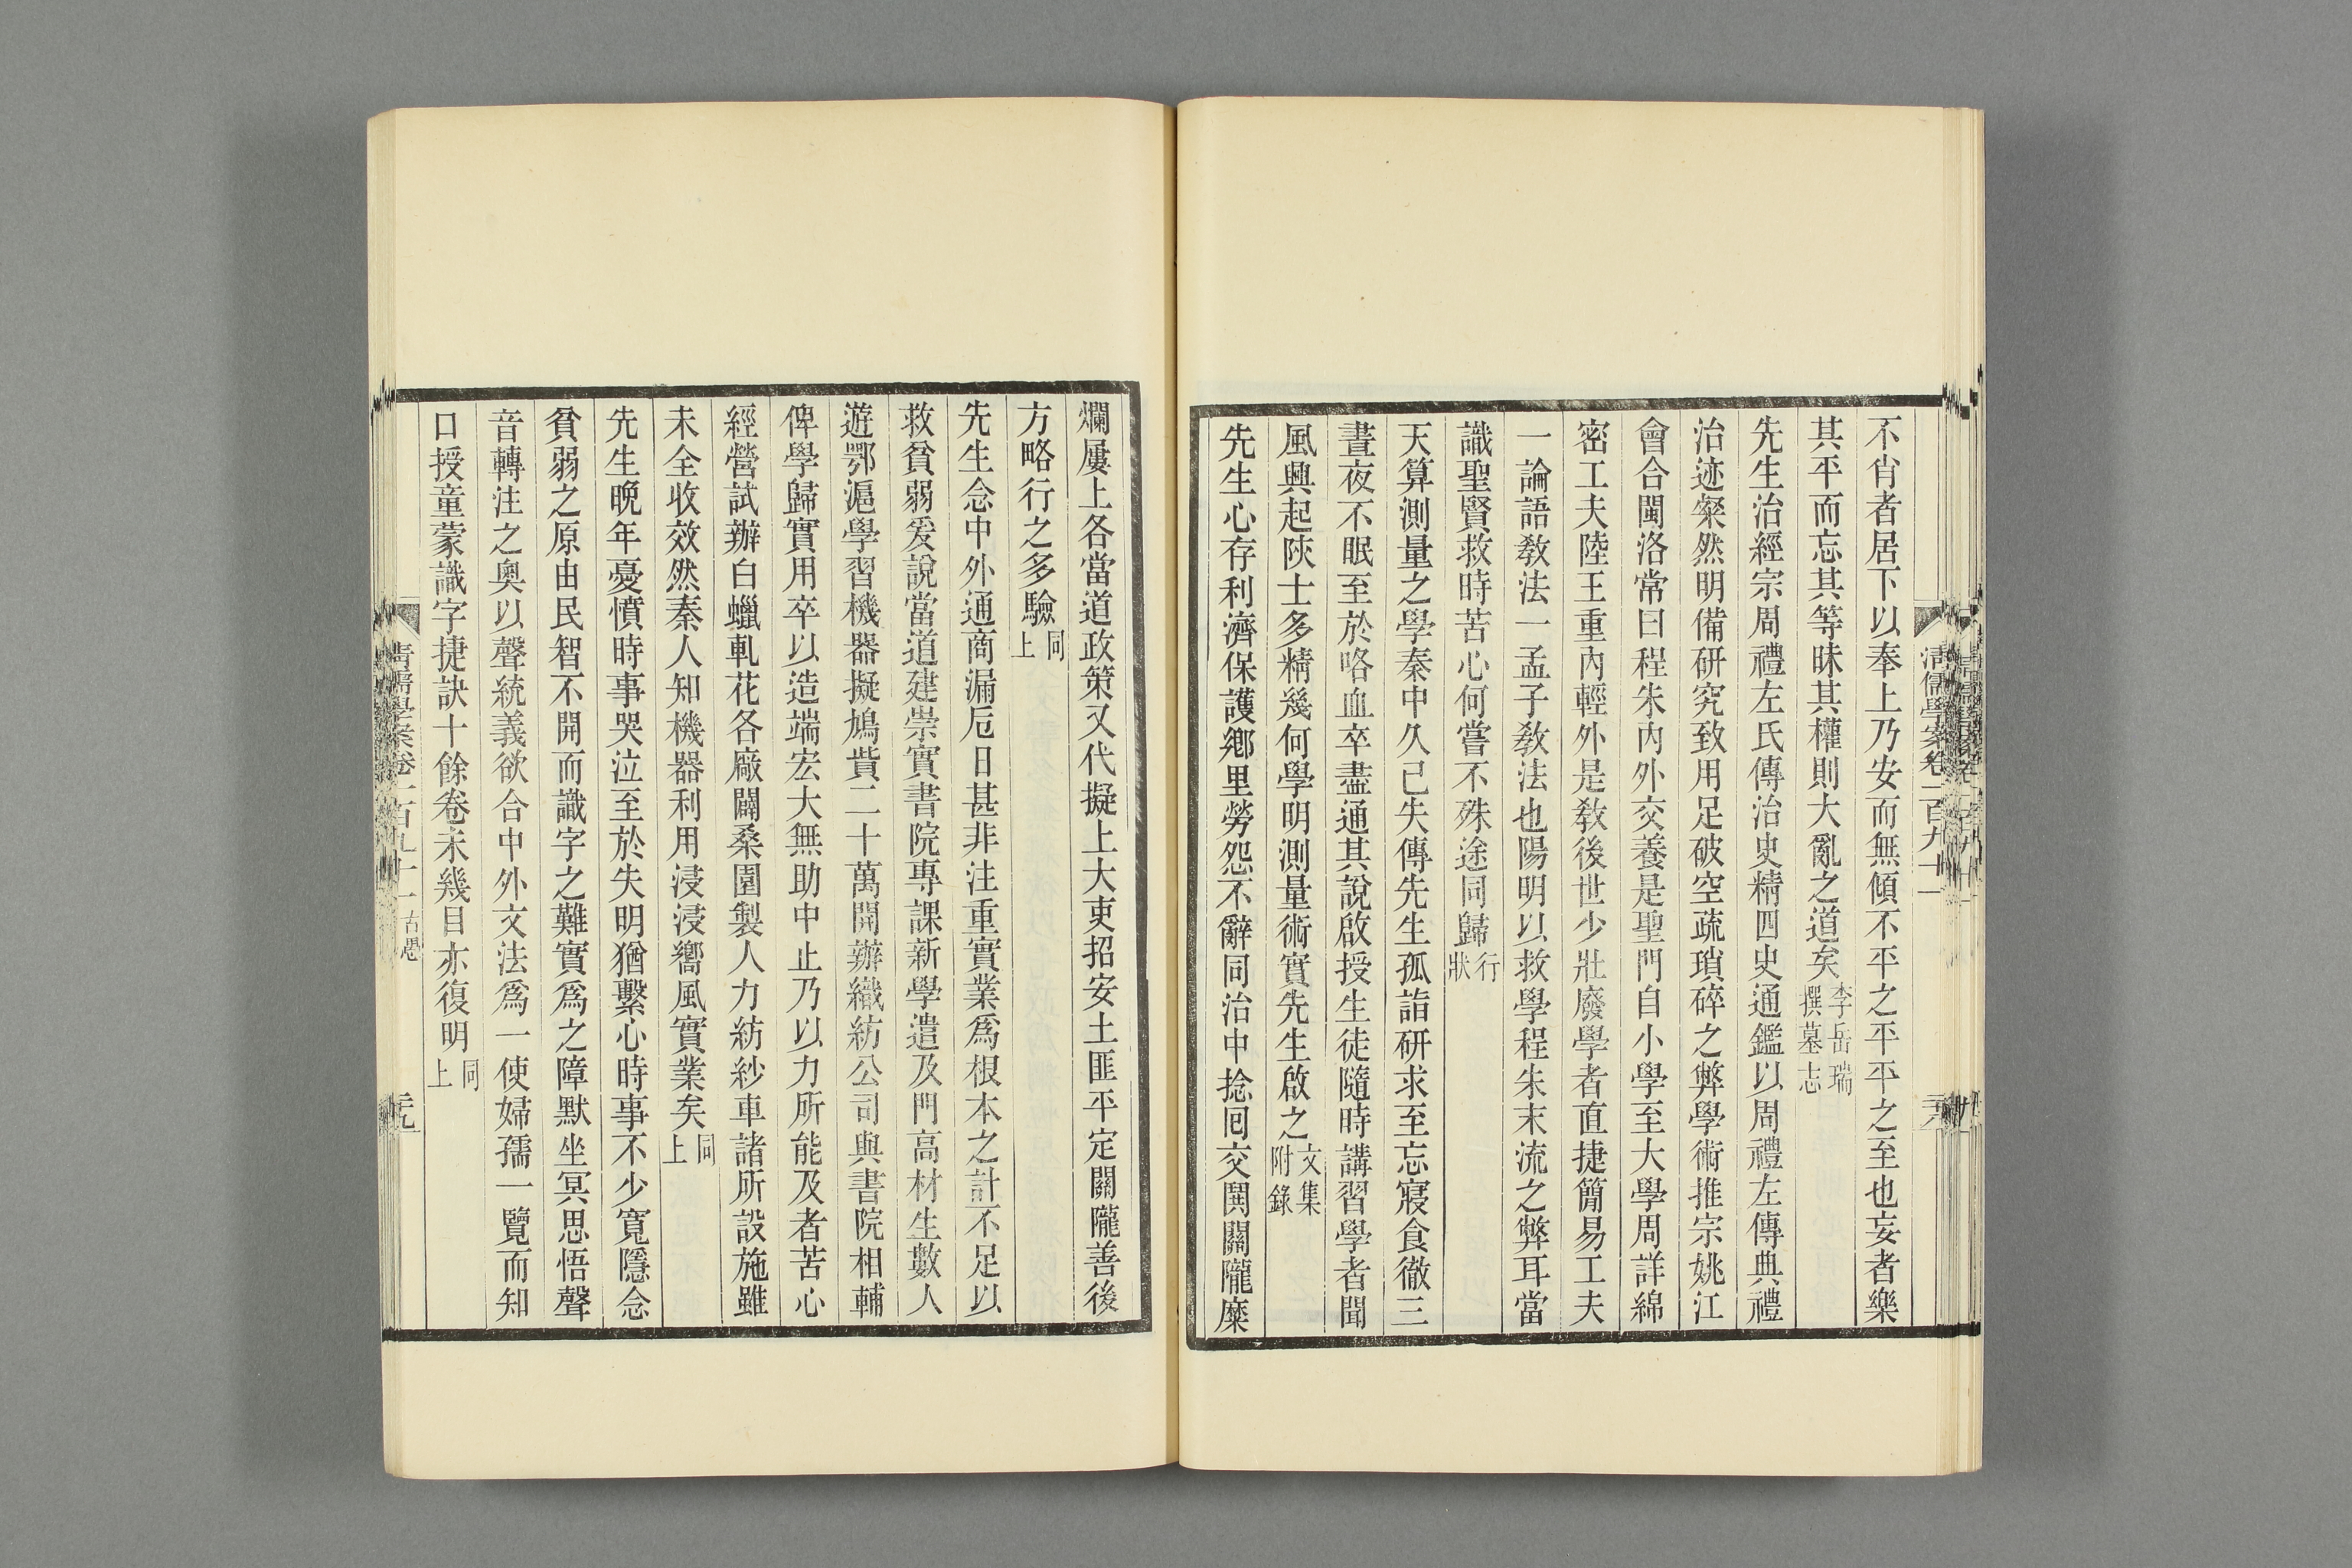 清儒學案卷一百九十一
不肖者居下以奉上乃安而無傾不平之平平之至也妄者樂
其平而忘其等昧其權則大亂之道矣李岳瑞撰墓志
先生治經宗周禮左氏傳治史精四史通鑑以周禮左傳典禮
治迹粲然明備研究致用足破空疏瑣碎之弊學術推宗姚江
會合閩洛常曰程朱內外交養是聖門自小學至大學周詳綿
密工夫陸王重內輕外是教後世少壯廢學者直捷簡易工夫
一論語教法一孟子教法也陽明以救學程朱末流之弊耳當
識聖賢救時苦心何嘗不殊途同歸行狀
天算測量之學秦中久已失傳先生孤詣研求至忘寢食徹三
晝夜不眠至於咯血卒盡通其說啟授生徒隨時講習學者聞
風興起陝士多精幾何學明測量術實先生啟之文集附錄
先生心存利濟保護鄉里勞怨不辭同治中捻回交鬨關隴糜
爛屢上各當道政策又代擬上大吏招安土匪平定關隴善後
方略行之多驗同上
先生念中外通商漏卮日甚非注重實業爲根本之計不足以
救貧弱爰說當道建崇實書院專課新學遣及門高材生數人
遊鄂滬學習機器擬鳩貲二十萬開辦織紡公司與書院相輔
俾學歸實用卒以造端宏大無助中止乃以力所能及者苦心
經營試辦白蠟軋花各廠闢桑園製人力紡紗車諸所設施雖
未全收效然秦人知機器利用浸浸嚮風實業矣同上
先生晚年憂憤時事哭泣至於失明猶繫心時事不少寬隱念
貧弱之原由民智不開而識字之難實爲之障默坐冥思悟聲
音轉注之奧以聲統義欲合中外文法爲一使婦孺一覽而知
口授童蒙識字捷訣十餘卷未幾目亦復明同上
清儒學案卷一百九十一 古愚